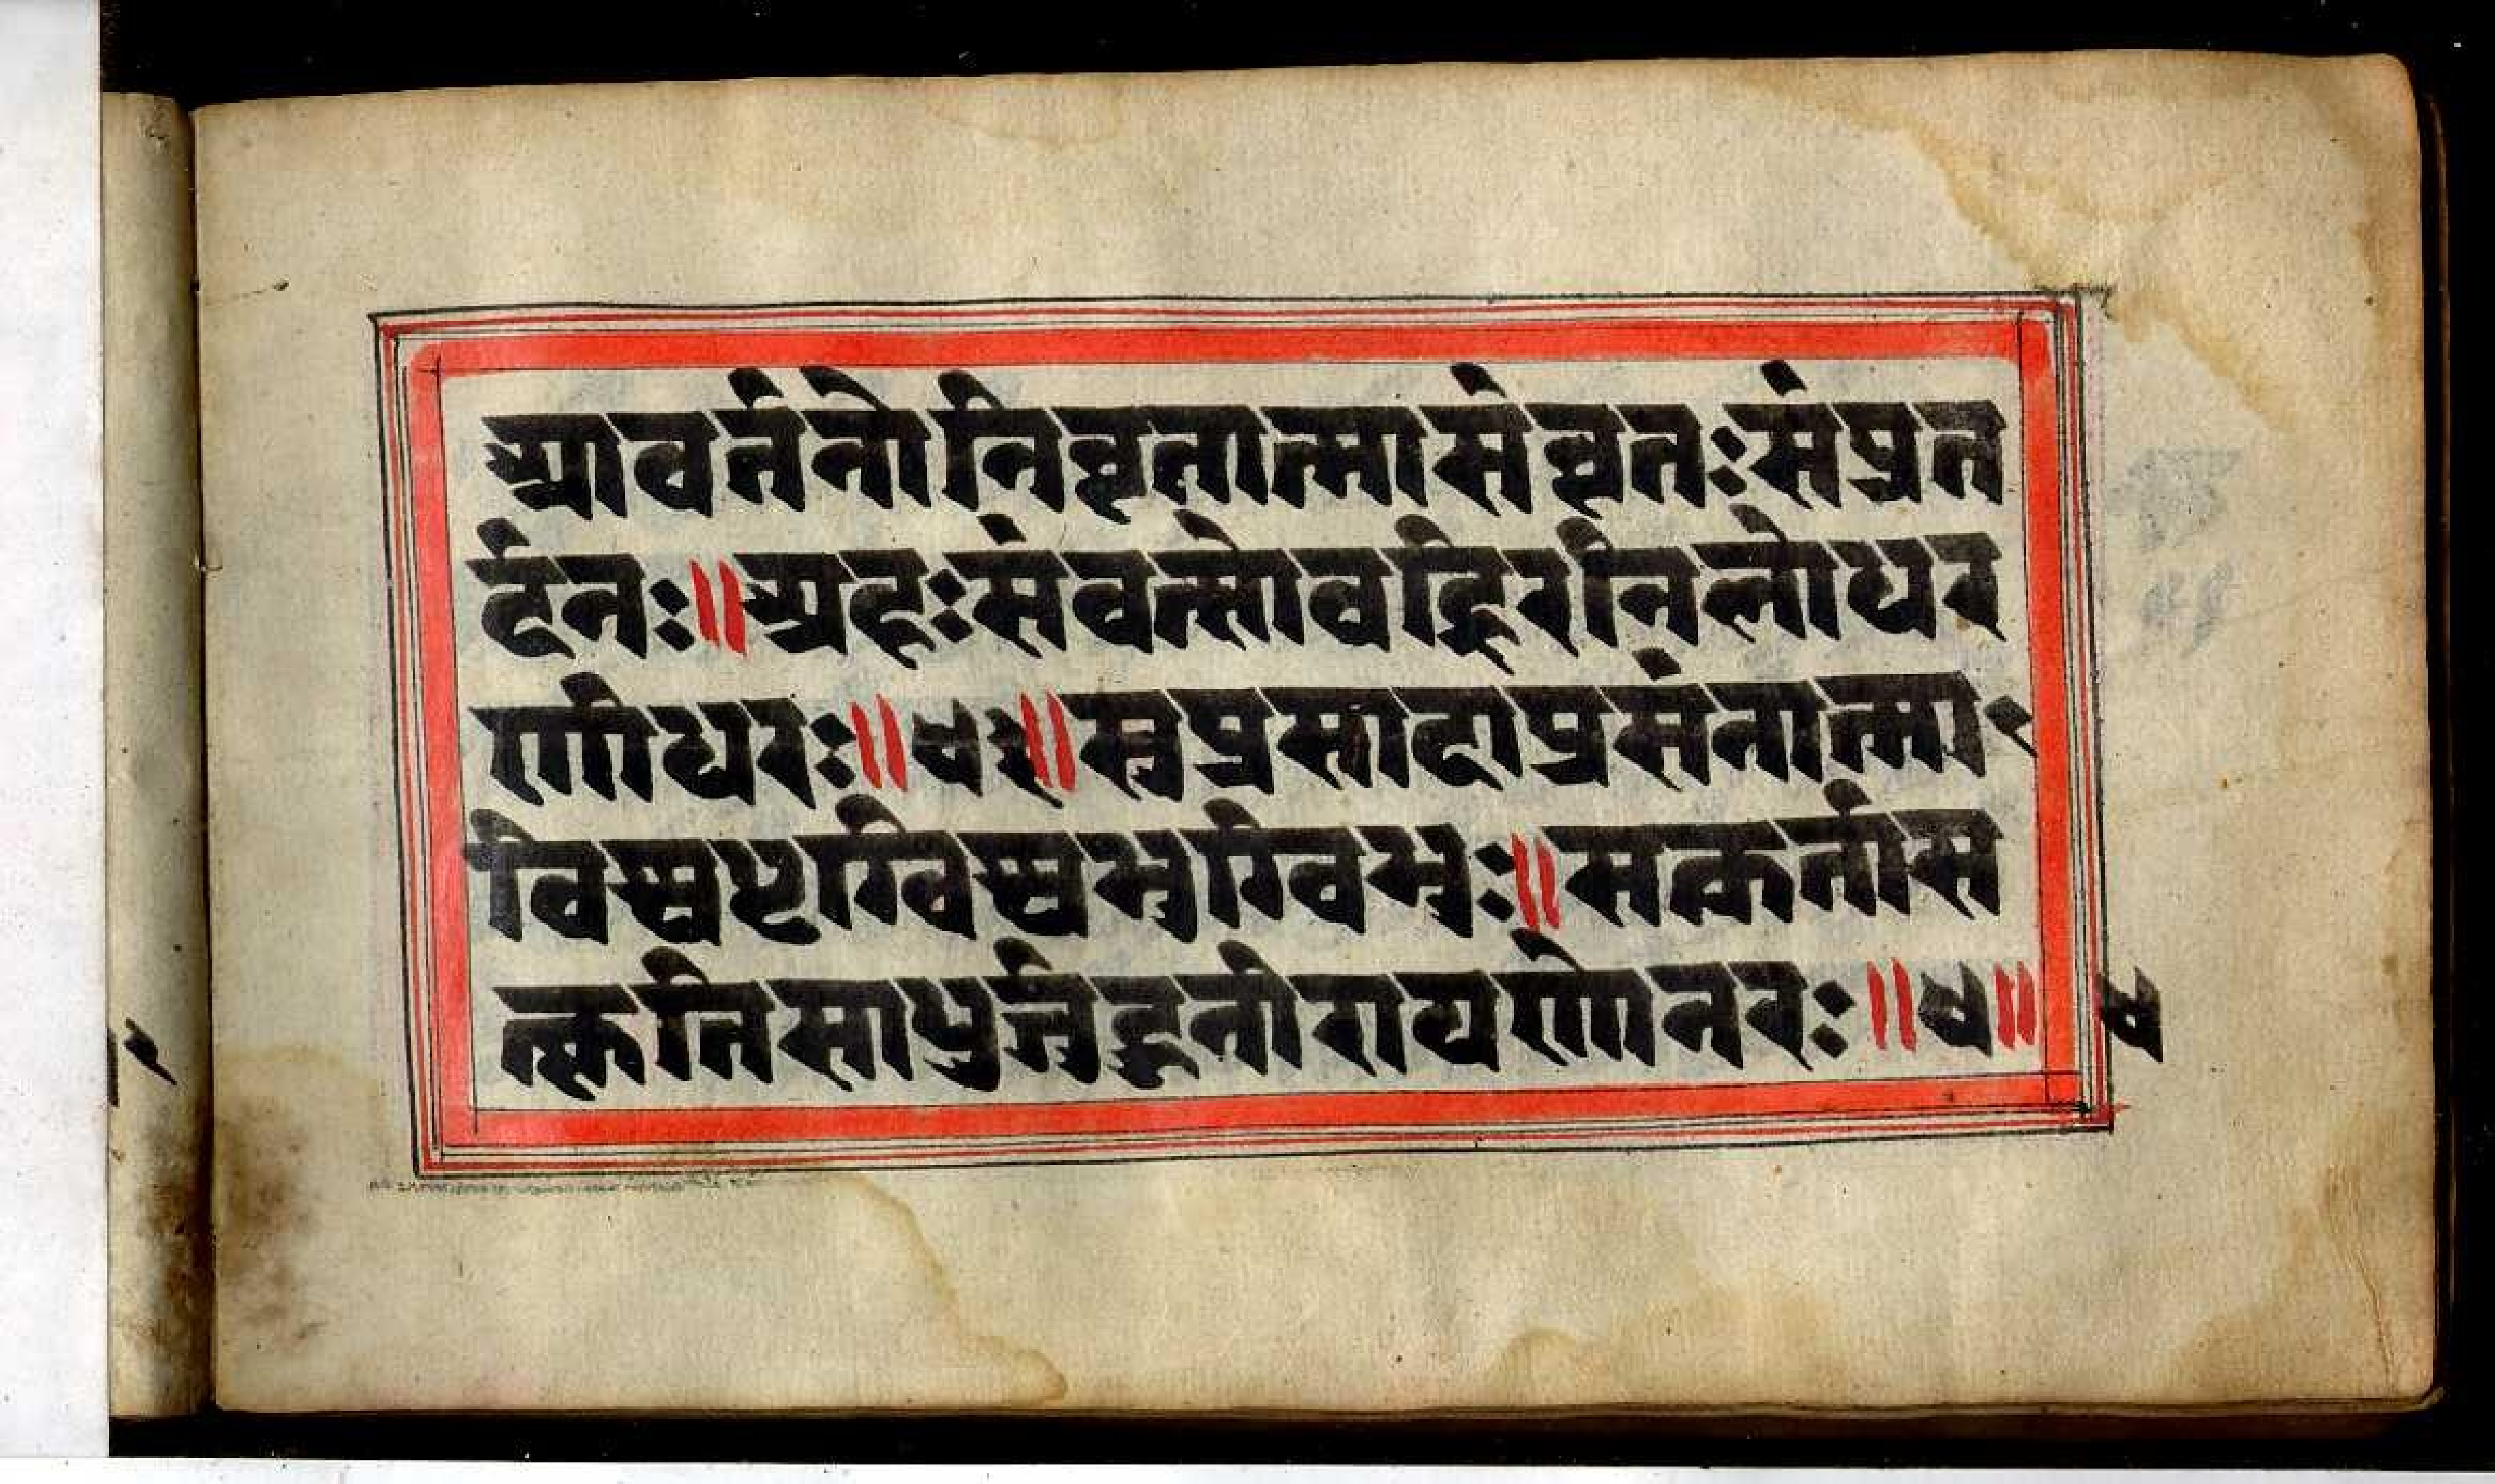 आवर्तनोनिवृतात्मासंवृतःसंप्रत
र्दनः॥अहःसंवर्त्तोवह्निरनिलोधर
णीधरः॥ ॥सुप्रसादाप्रसंनात्मा
विश्वष्टग्विश्वभुग्विभुः॥सत्कर्तास
त्कृतिसाधुर्जह्नुर्नारायणोनरः॥ ॥